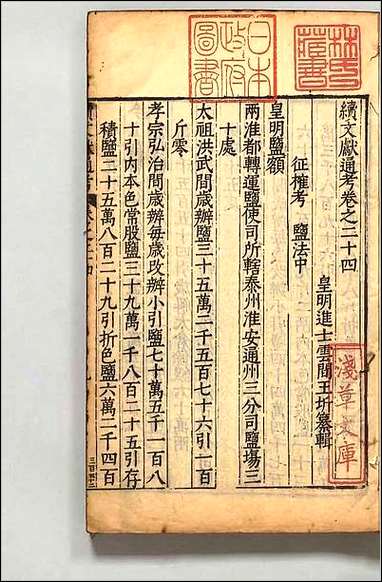 續文獻通考卷之二十四
皇明進士雲間王圻纂輯
征榷考 鹽法中
皇明鹽額
兩淮都轉運鹽使司所轄泰州淮安通州三分司鹽場三
十處
太祖洪武間歲辦鹽三十五萬二千五百七十六引一百
斤零
孝宗弘治間歲辦每歲改辦小引鹽七十萬五千一百八
十引內本色常股鹽三十九萬一千八百二十五引存
積鹽二十五萬八百二十九引折色鹽六萬二千四百
林氏藏書
日本政府圖書
淺草文庫